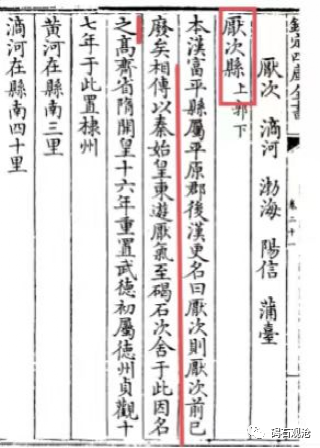 欽定四庫全書
卷二十一
厭次 滴河 渤海 陽信 蒲臺
厭次縣上郭下
本漢富平縣屬平原郡後漢更名曰厭次則厭次前已
廢矣相傳以秦始皇東遊厭氣至碣石次舍于此因名
之高齊省隋開皇十六年重置武德初屬德州貞觀十
七年于此置棣州
黄河在縣南三里
滴河在縣南四十里
码石观沧